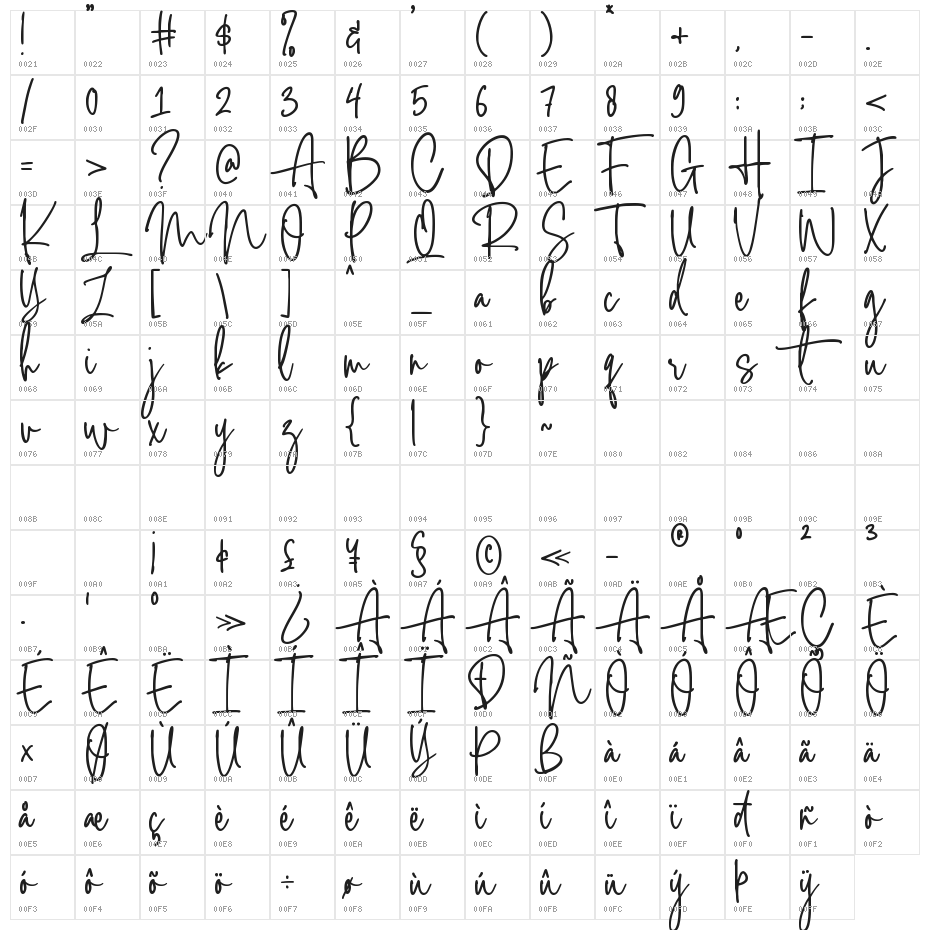 ! " # $ % & ' ( ) * + , - .
0021 0022 0023 0024 0025 0026 0027 0028 0029 002A 002B 002C 002D 002E
/ 0 1 2 3 4 5 6 7 8 9 : ; <
002F 0030 0031 0032 0033 0034 0035 0036 0037 0038 0039 003A 003B 003C
= > ? @ A B C D E F G H I J
003D 003E 003F 0040 0041 0042 0043 0044 0045 0046 0047 0048 0049 004A
K L M N O P Q R S T U V W X
004B 004C 004D 004E 004F 0050 0051 0052 0053 0054 0055 0056 0057 0058
Y Z [ \ ] ^ _ a b c d e f g
0059 005A 005B 005C 005D 005E 005F 0061 0062 0063 0064 0065 0066 0067
h i j k l m n o p q r s t u
0068 0069 006A 006B 006C 006D 006E 006F 0070 0071 0072 0073 0074 0075
v w x y z { | } ~
0076 0077 0078 0079 007A 007B 007C 007D 007E 0080 0082 0084 0086 008A
008B 008C 008E 0091 0092 0093 0094 0095 0096 0097 009A 009B 009C 009E
¡ ¢ £ ¥ § © « - ® ° ² ³
009F 00A0 00A1 00A2 00A3 00A5 00A7 00A9 00AB 00AD 00AE 00B0 00B2 00B3
· ¹ º » ¿ À Á Â Ã Ä Å Æ Ç È
00B7 00B9 00BA 00BB 00BF 00C0 00C1 00C2 00C3 00C4 00C5 00C6 00C7 00C8
É Ê Ë Ì Í Î Ï Ð Ñ Ò Ó Ô Õ Ö
00C9 00CA 00CB 00CC 00CD 00CE 00CF 00D0 00D1 00D2 00D3 00D4 00D5 00D6
× Ø Ù Ú Û Ü Ý Þ ß à á â ã ä
00D7 00D8 00D9 00DA 00DB 00DC 00DD 00DE 00DF 00E0 00E1 00E2 00E3 00E4
å æ ç è é ê ë ì í î ï ð ñ ò
00E5 00E6 00E7 00E8 00E9 00EA 00EB 00EC 00ED 00EE 00EF 00F0 00F1 00F2
ó ô õ ö ÷ ø ù ú û ü ý þ ÿ
00F3 00F4 00F5 00F6 00F7 00F8 00F9 00FA 00FB 00FC 00FD 00FE 00FF